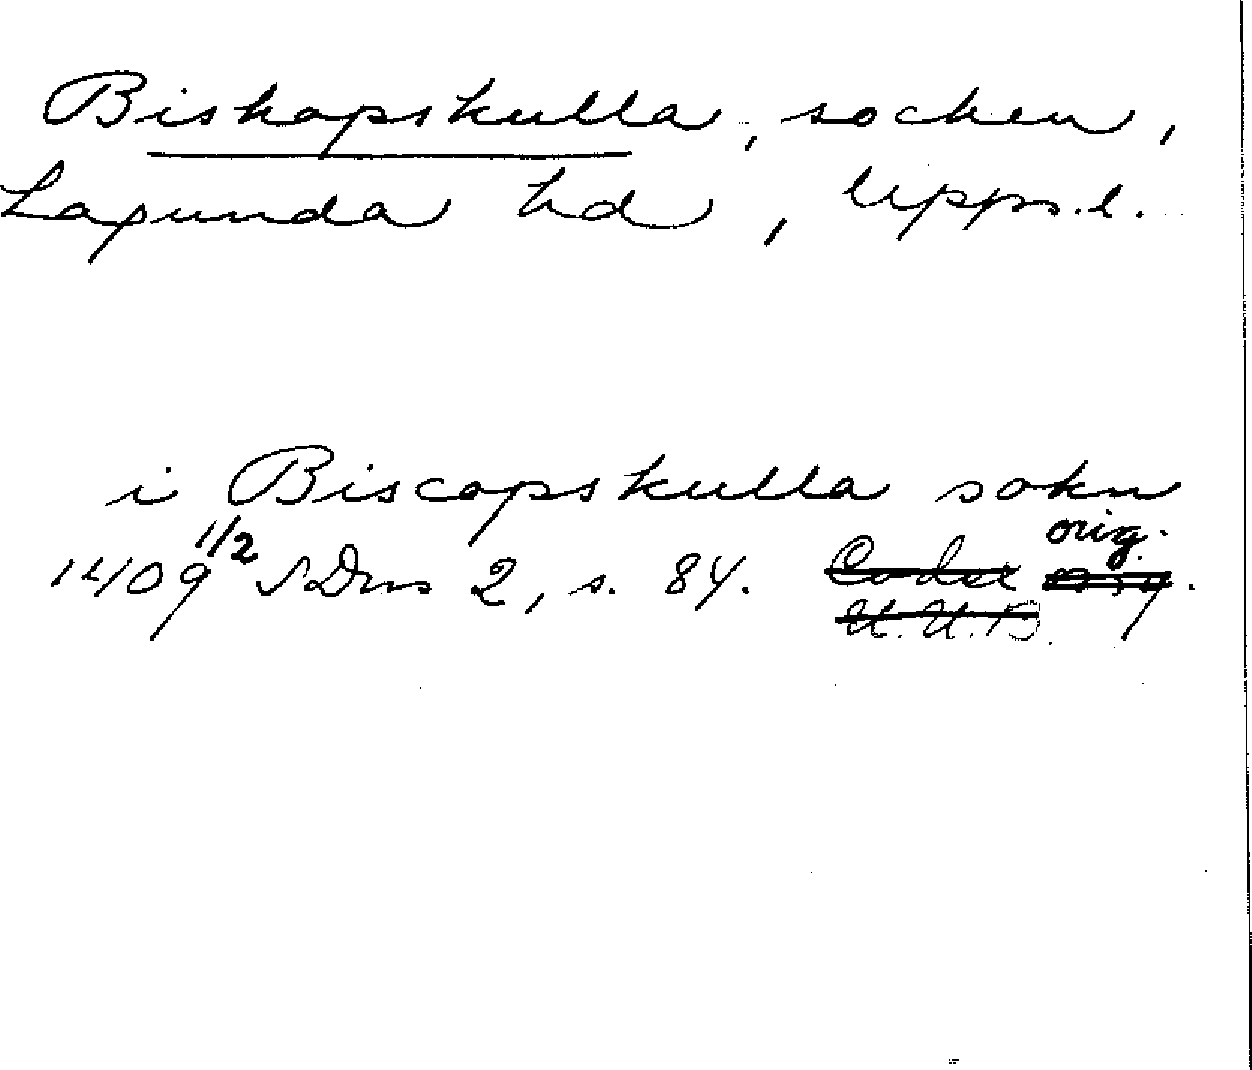 Biskopskulla, socken,
Lagunda hd, Upps.l.
i Biscopskulla sokn
1409 1/2 SDns 2, s. 84. orig.
U.U.B.